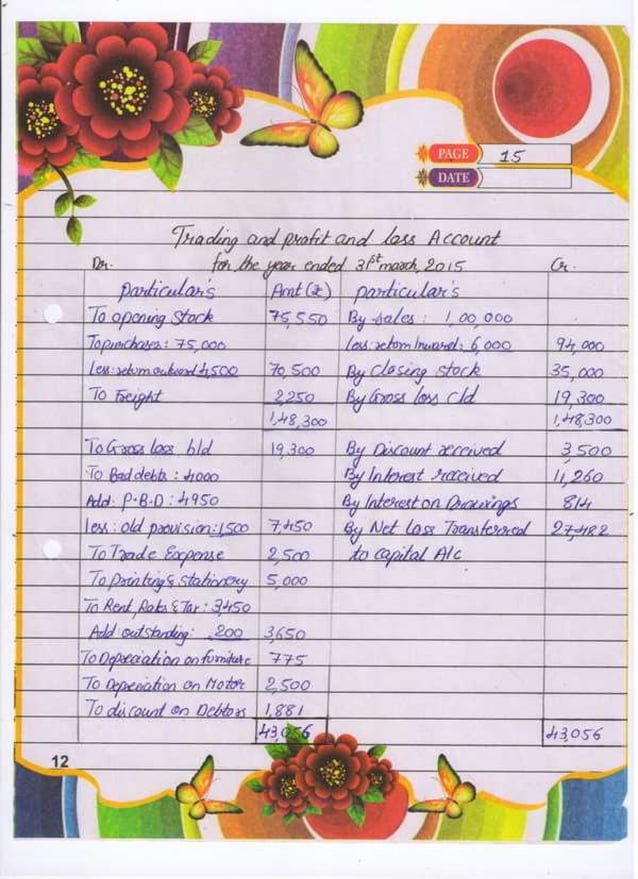 PAGE 15
DATE
Trading and profit and loss Account
Dr. for the year ended 31st march, 2015 Cr.
particular's Amt (₹) particular's
To opening Stock 75,550 By sales : 1,00,000
To purchases : 75,000 less: return Inward : 6,000 94,000
Less: return outward 4,500 70,500 By Closing stock 35,000
To Freight 2,250 By Gross loss c/d 19,300
1,48,300 1,48,300
To Gross loss b/d 19,300 By Discount received 3,500
To Bad debts : 4000 By Interest received 11,260
Add: P.B.D : 4950 By Interest on Drawings 814
less: old provision: 1500 7,450 By Net Loss Transferred 27,482
To Trade Expense 2,500 to capital A/c
To printing & stationery 5,000
To Rent, Rates & Tax : 3,450
Add outstanding: 200 3,650
To Depreciation on furniture 775
To Depreciation on Motor 2,500
To discount on Debtors 1,881
43,056 43,056
12